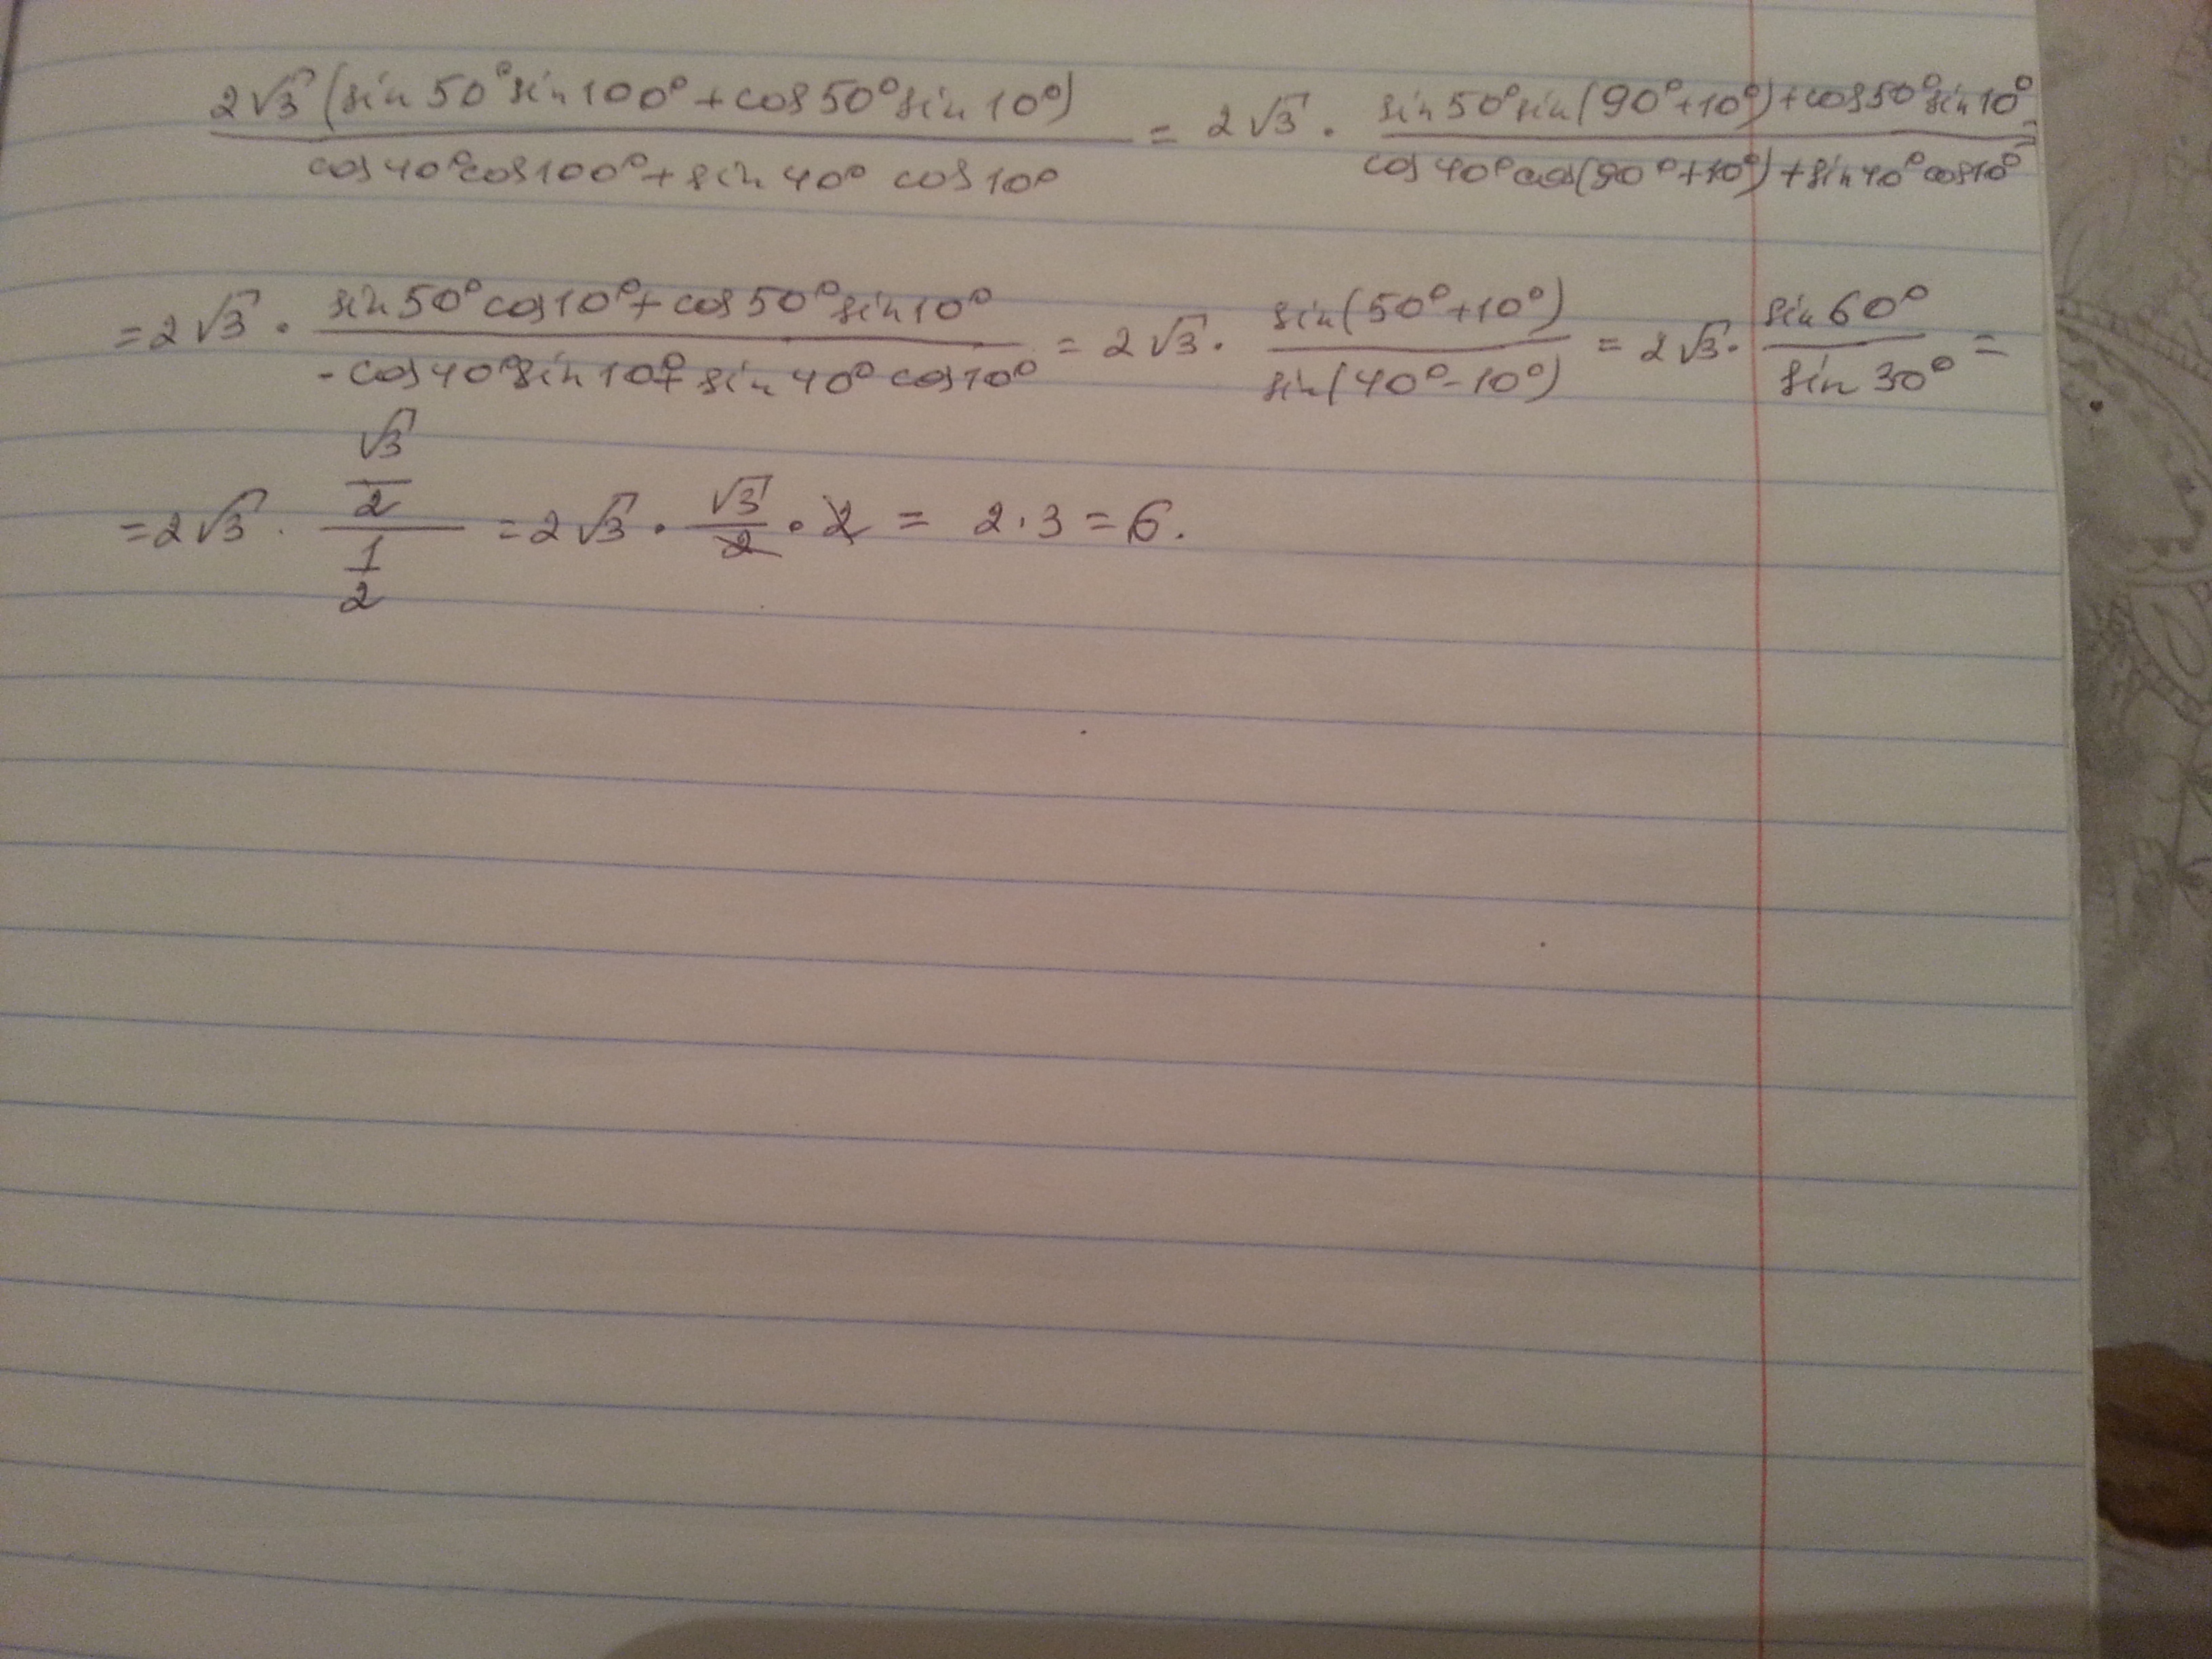 2√3 (sin 50° sin 100° + cos 50° sin 10°) / cos 40° cos 100° + sin 40° cos 10° = 2√3 · sin 50° sin (90° + 10°) + cos 50° sin 10° / cos 40° cos (90° + 10°) + sin 40° cos 10° =
= 2√3 · sin 50° cos 10° + cos 50° sin 10° / - cos 40° sin 10° + sin 40° cos 10° = 2√3 · sin (50° + 10°) / sin (40° - 10°) = 2√3 · sin 60° / sin 30° =
= 2√3 · √3/2 / 1/2 = 2√3 · √3/2 · 2 = 2 · 3 = 6.